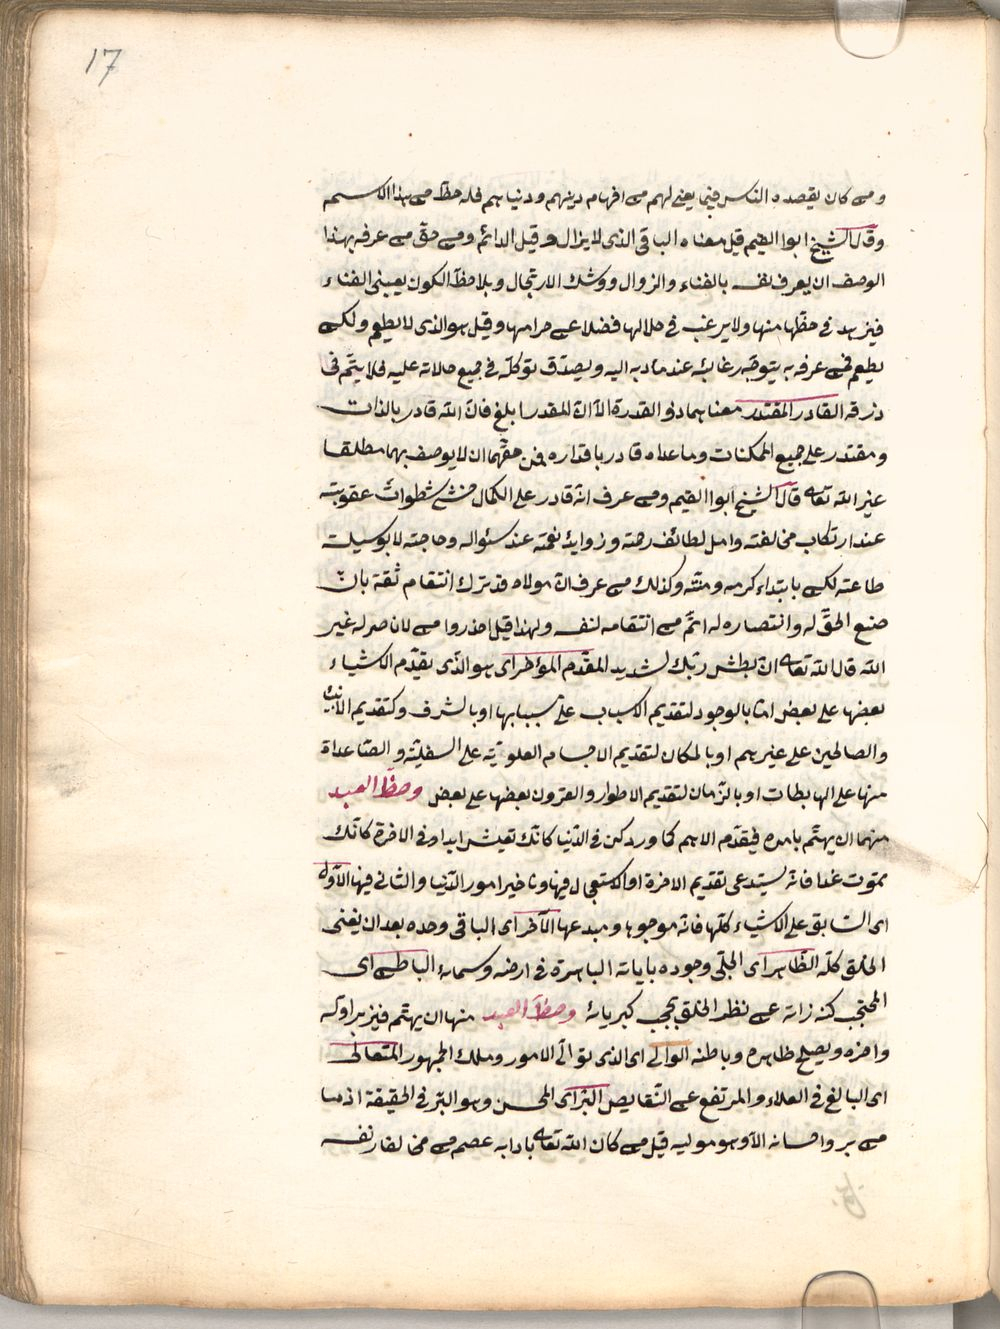 17
ومن كان يقصده الناس فيما يعنى لهم من افهام دينهم ودنياهم فله حظ من هذا الاسم
وقال الشيخ ابوا القيم قيل معناه الباقى الذى لا يزال وقيل الدائم ومن حق من عرفه بهذا
الوصف ان يعرف نفسه بالفناء والزوال ووشك الارتجال ويلاحظ الكون بعينى الفناء
فيزهد فى حظها منها ولا يرغب فى حلالها فضلا عن حرامها وقيل هو الذى لا يطعم ولكن
يطعم فمن عرفه به يتوجه رغائبه عند مأدبه اليه ويصدق توكله فى جميع حالاته عليه فلا يتهم فى
رزقه القادر المقتدر معناهما ذو القدرة الا ان المقتدر ابلغ فان الله قادر بالذات
ومقتدر على جميع الممكنات وما عداه قادر باقداره فمن حقهما ان لا يوصف بهما مطلقا
غير الله تعالى قال الشيخ ابوا القيم ومن عرف انه قادر على الكمال خشى سطوات عقوبته
عند ارتكاب مخالفته وامل لطائف رحمته وزوايد نعمته عند سئواله وحاجته لا بوسيلة
طاعته لكن بابتداء كرمه ومنته وكذلك من عرف ان مولاه قد ترك انتقام ثقة بان
صنع الحق له وانتصاره له اتم من انتقامه لنفسه ولهذا قيل احذروا من لا ناصر له غير
الله قال الله تعالى ان بطش ربك لشديد المقدم المؤخر اى هو الذى يقدم الاشياء
بعضها على بعض اما بالوجود لتقديم الاسباب على مسبباتها او بالشرف وكتقديم الانبياء
والصالحين على غيرهم او بالمكان لتقديم الاجسام العلوية على السفلية والصاعداة
منها على الهابطات او بالزمان لتقديم الاطوار والقرون بعضها على بعض وحظ العبد
منهما ان يهتم بامره فيقدم الاهم كما ورد كن فى الدنيا كانك تعيش ابدا وفى الاخرة كانك
تموت غدا فانه يستدعى تقديم الاخرة او الاستعجال فيها وتأخير امور الدنيا والثانى فيها الاول
اى السابق على الاشياء كلها فانه موجدها ومبدعها الآخر اى الباقى وحده بعد ان يفنى
الخلق كله الظاهر اى الجلى وجوده باياته الباهرة فى ارضه وسمائه الباطن اى
المحتجب كنه ذاته عن نظر الخلق بحجب كبريائه وحظ العبد منها ان يهتم فيزبر اوله
واخره ويصلح ظاهره وباطنه الوالى اى الذى تولى الامور وملك الجمهور المتعالى
اى البالغ فى العلاء والمرتفع عن النقايص البر اى المحسن وهو البر فى الحقيقة اذ ما
من بر واحسانه الا وهو موليه قيل من كان الله تعالى بارا به عصم من مخالفاة نفسه